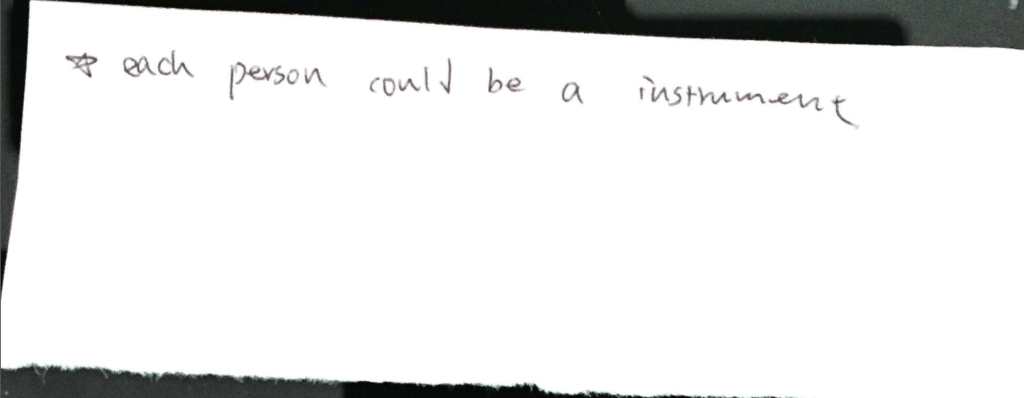 ☆ each person could be a instrument